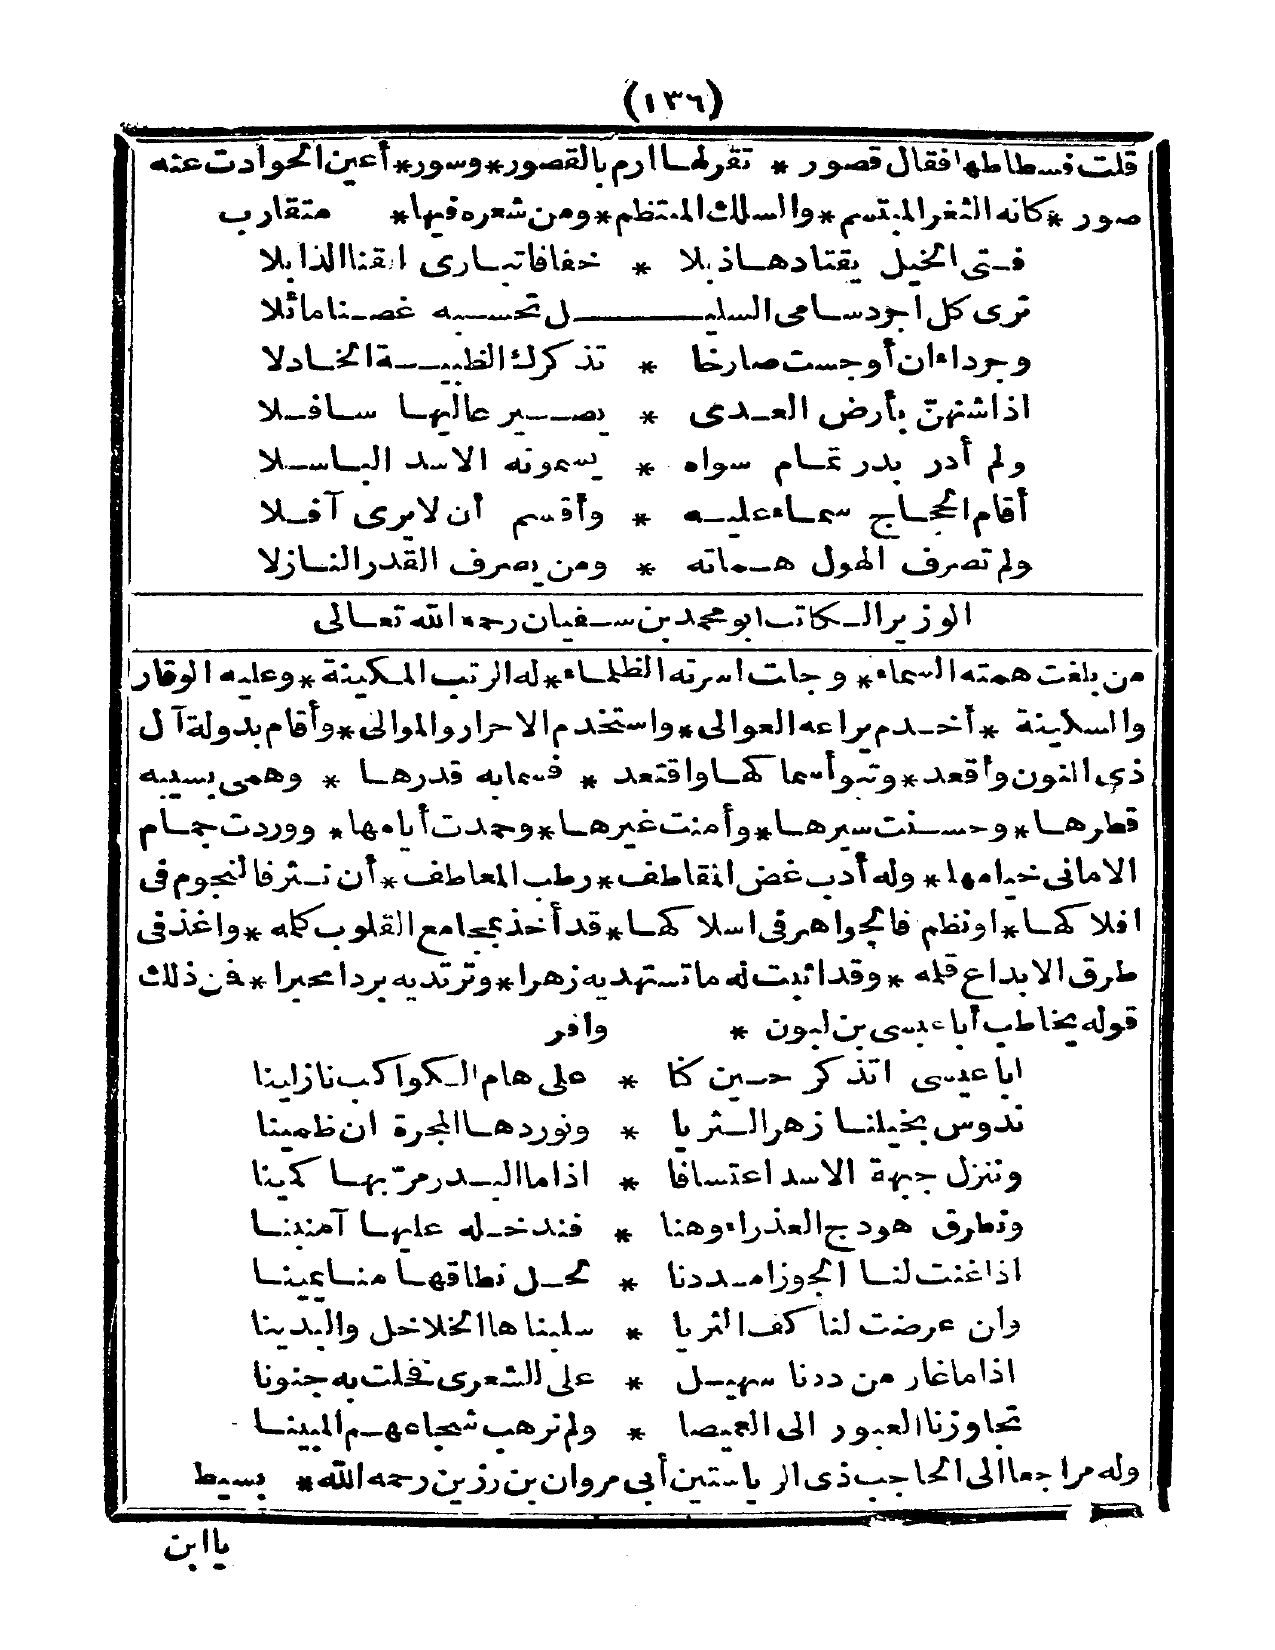 (١٣٦)
قلت فسطاطها فقال قصور * تقر لها ارم بالقصور * وسور * أعين الحوادث عنه
صور * كانه الثغر المبتسم * والسلك المنتظم * ومن شعره فيها * متقارب
فتى الخيل يقتادها ذبلا * خفافا تبارى القنا الذابلا
ترى كل اجرد سامى التليل تحسبه غصنا مائلا
وجرداء ان أوجست صارخا * تذكرك الظبية الخاذلا
اذا شنهن بأرض العدى * يصير عاليها سافلا
ولم أدر بدر تمام سواه * يسمونه الاسد الباسلا
أقام الحجاج سماء عليه * وأقسم أن لا يرى آفلا
ولم تصرف الهول هماته * ومن يصرف القدر النازلا
الوزير الكاتب ابو محمد بن سفيان رحمه الله تعالى
من بلغت همته السماء * وجلت اسرته الظلماء * له الرتب المكينة * وعليه الوقار
والسكينة * أخدم يراعه العوالى * واستخدم الاحرار والموالى * وأقام بدولة آل
ذى النون وأقعد * وتبوأ سماكها واقتعد * فسما به قدرها * وهمى بسيبه
قطرها * وحسنت سيرها * وأمنت غيرها * وحمدت أيامها * ووردت جمام
الامانى خيامها * وله أدب غض المقاطف * رطب المعاطف * أن نثر فالنجوم فى
افلاكها * او نظم فالجواهر فى اسلاكها * قد أخذ بمجامع القلوب كله * واغذ فى
طرق الابداع قلمه * وقد اثبت له ما تستهديه زهرا * وترتديه بردا محبرا * فن ذلك
قوله يخاطب أبا عيسى بن لبون * وافر
ابا عيسى اتذكر حين كنا * على هام الكواكب نازلينا
ندوس بخيلنا زهر الثريا * ونوردها المجرة ان ظمينا
وننزل جبهة الاسد اعتسافا * اذا ما البدر مر بها كمينا
ونطرق هودج العذراء وهنا * فندخله عليها آمنينا
اذا غنت لنا الجوزا مددنا * لحل نطاقها منا يمينا
وان عرضت لنا كف الثريا * سلبناها الخلاخل والبرينا
اذا ما غار من ددنا سهيل * على الشعرى نقلت به جنونا
تجاوزنا العبور الى الغميصا * ولم نرهب شجاعهم المبينا
وله مراجعا الى الحاجب ذى الرياستين أبى مروان بن رزين رحمه الله * بسيط
يا ابن